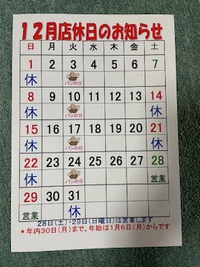 12月店休日のお知らせ
日 月 火 水 木 金 土
1 2 3 4 5 6 7
休 パンの日
8 9 10 11 12 13 14
休 パンの日 休
15 16 17 18 19 20 21
休 パンの日 休
22 23 24 25 26 27 28
休 パンの日 営業
29 30 31
営業 休
28日(土)・29日(日曜日)は営業します
*年内30日(月)まで、年始は1月6日(月)からです